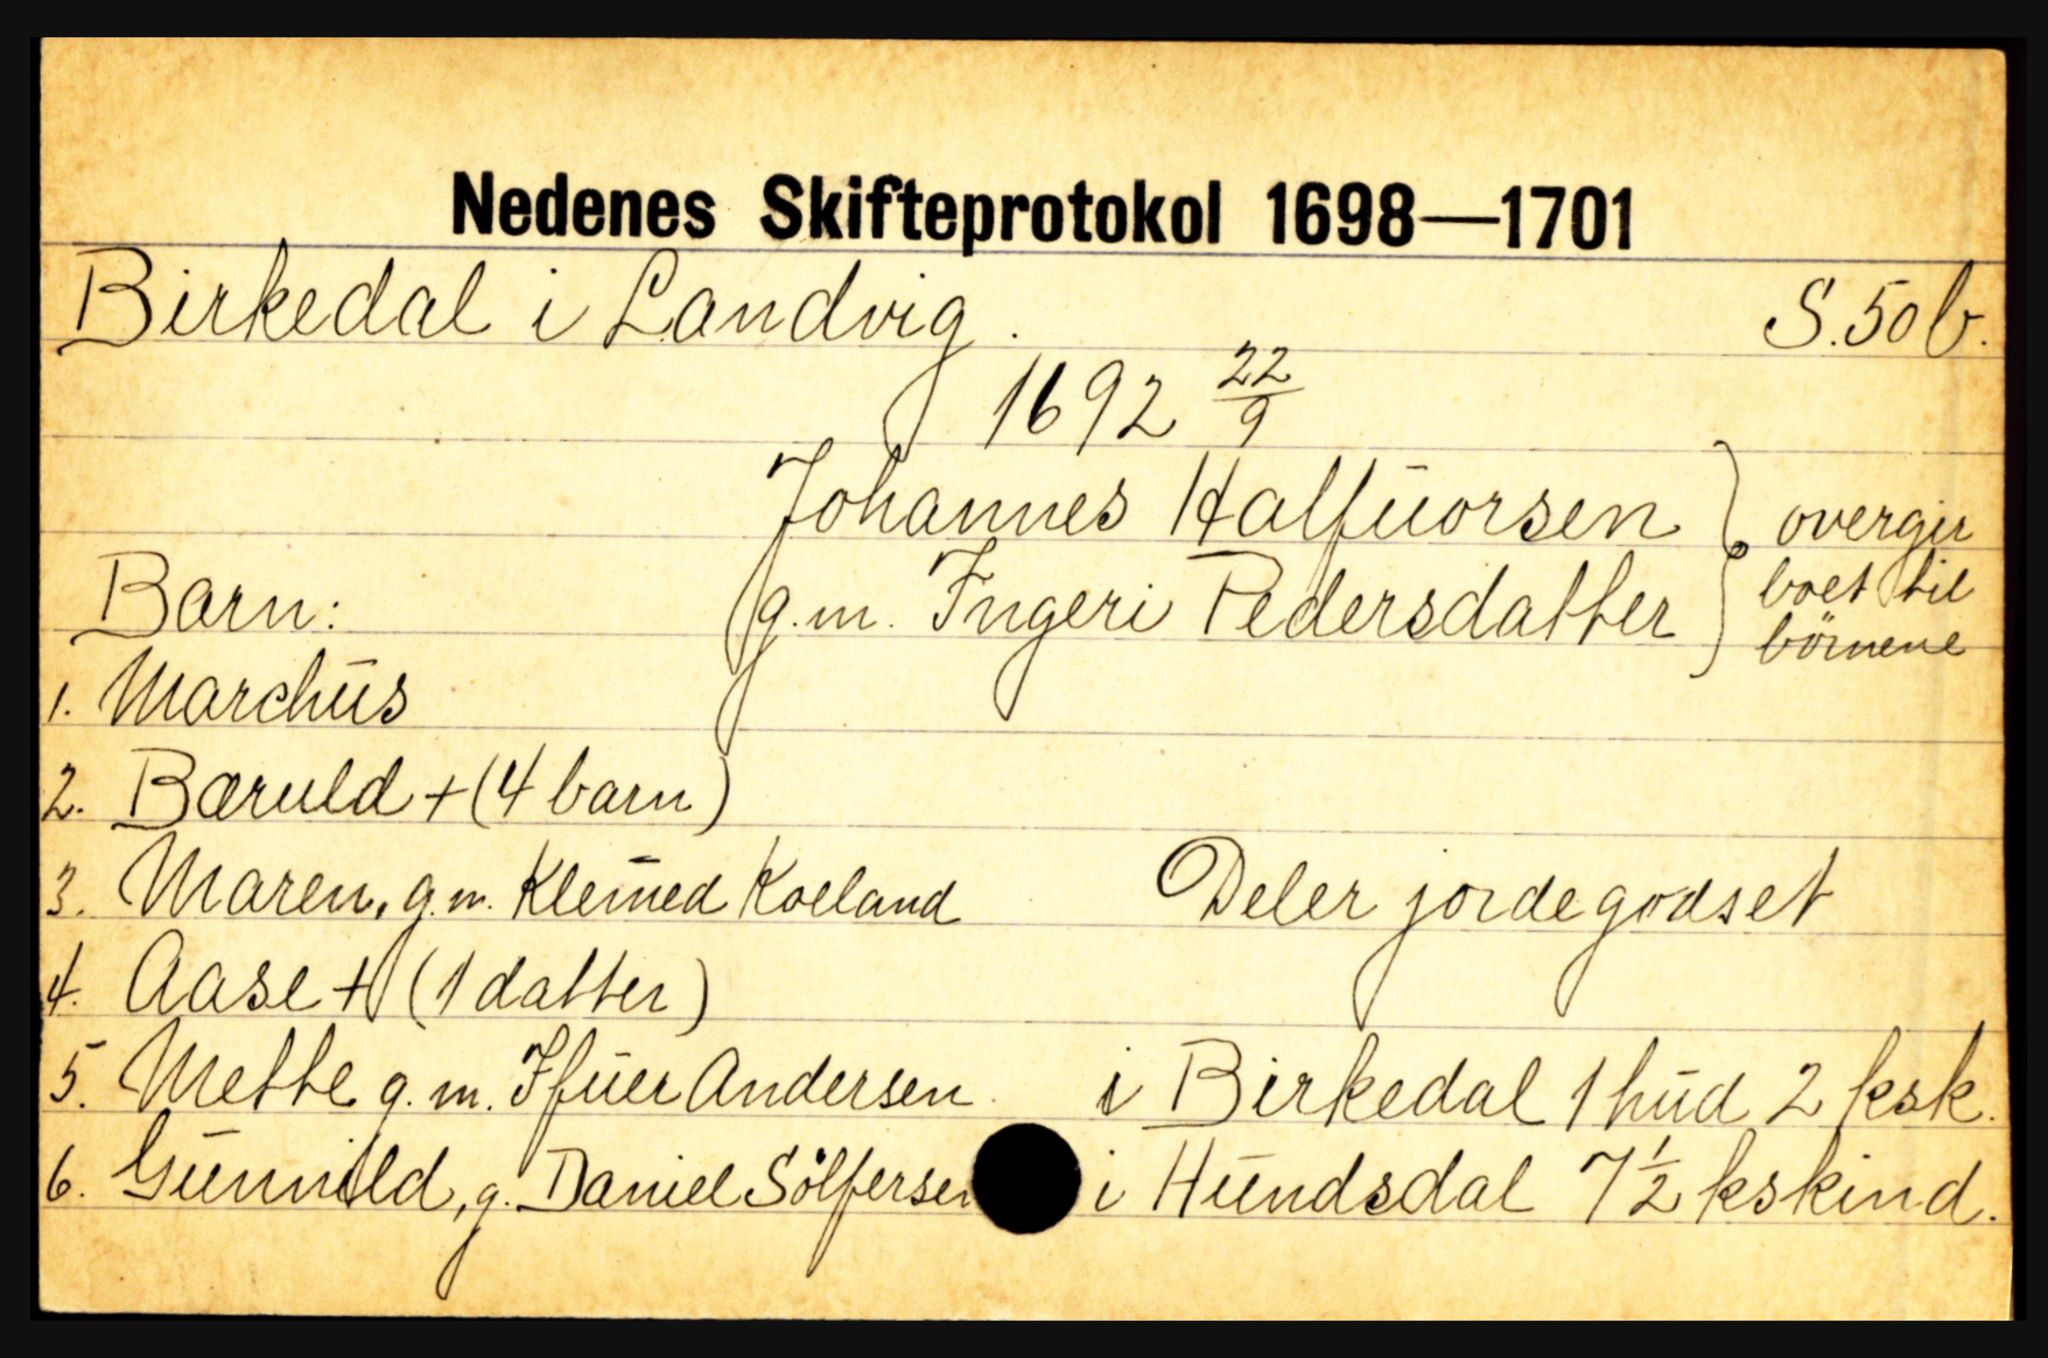 Nedenes Skifteprotokol 1698—1701
Birkedal i Landvig. S. 50 b.
1692 22/9
Johannes Halfŭorsen } overgir
g.m. Ingeri Pedersdatter } boet til
börnene
Barn:
1. Marchŭs
2. Bæruld + (4 barn)
3. Maren, g.m. Klem̄ed Koeland Deler jordegodset
4. Aase + (1 datter)
5. Mette g.m. Ifŭer Andersen i Birkedal 1 hŭd 2 ksk.
6. Gŭnnild, g. Daniel Sölfersen i Hŭndsdal 7 1/2 kskind.